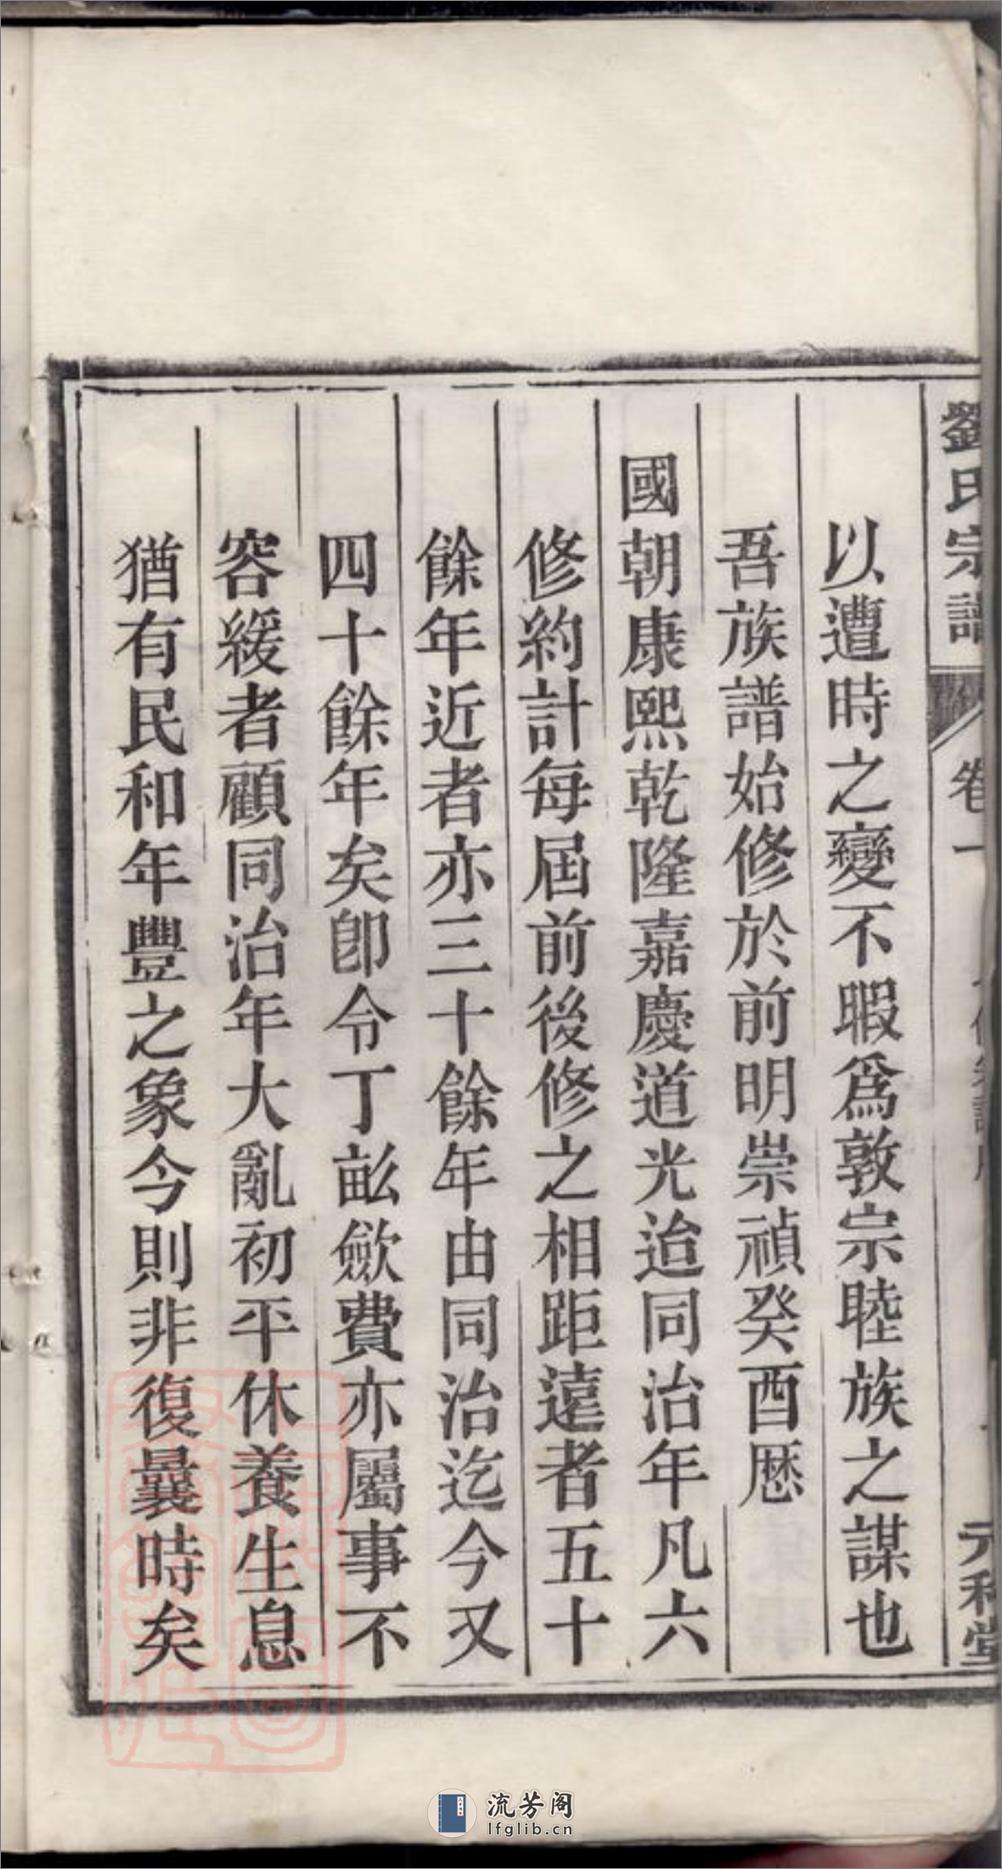 劉氏宗譜 卷一 元和堂
以遭時之變不暇爲敦宗睦族之謀也
吾族譜始修於前明崇禎癸酉歷
國朝康熙乾隆嘉慶道光迨同治年凡六
修約計每屆前後修之相距遠者五十
餘年近者亦三十餘年由同治迄今又
四十餘年矣卽令丁畝斂費亦屬事不
容緩者顧同治年大亂初平休養生息
猶有民和年豐之象今則非復曩時矣
流芳阁
lfglib.cn